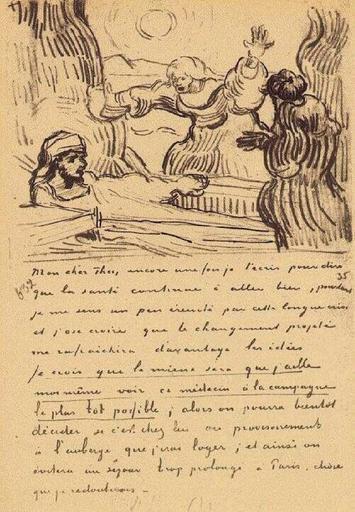 Mon cher Theo, encore une fois je t'écris pour dire
que la santé continue à aller bien, pourtant
je me sens un peu éreinté par cette longue crise
et j'ose croire que le changement projeté
me rafraichira davantage les idées
Je crois que le mieux sera que j'aille
moi même voir ce médecin à la campagne
le plus tôt possible; alors on pourra bientôt
décider si c'est chez lui ou provisoirement
à l'auberge que j'irai loger; et ainsi on
évitera un séjour trop prolongé à Paris, chose
que je redouterais –